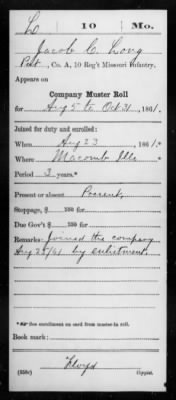 L | 10 | Mo.
Jacob C. Long
Pvt, Co. A, 10 Reg't Missouri Infantry.
Appears on
Company Muster Roll
for Aug 5 to Oct 31, 1861.
Joined for duty and enrolled:
When Aug 23, 1861.*
Where Macomb Ills
Period 3 years.*
Present or absent Present
Stoppage, $ 100 for
Due Gov't $ 100 for
Remarks: Joined the company
Aug 25/61 by enlistment.
*See enrollment on card from muster-in roll.
Book mark:
Floyd
(358c) Copyist.